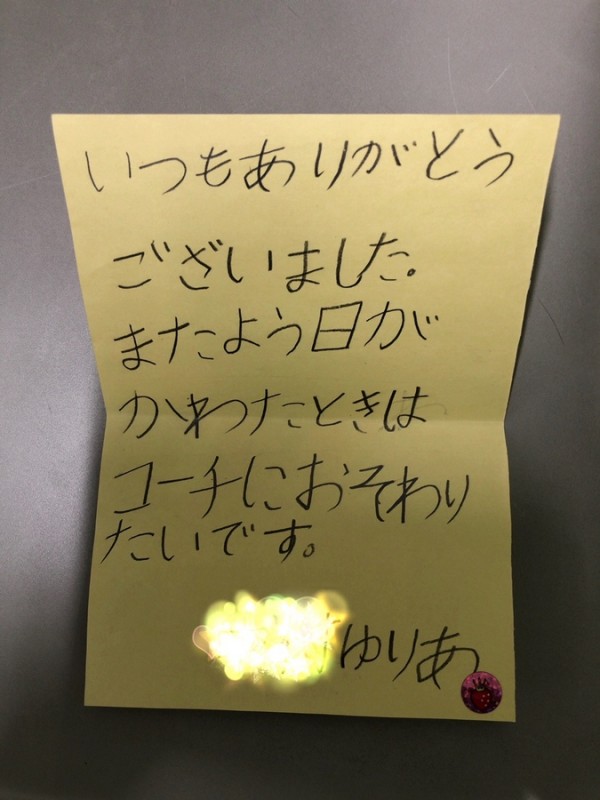 いつもありがとう
ございました。
またよう日が
かわったときは
コーチにおそわり
たいです。
ゆりあ